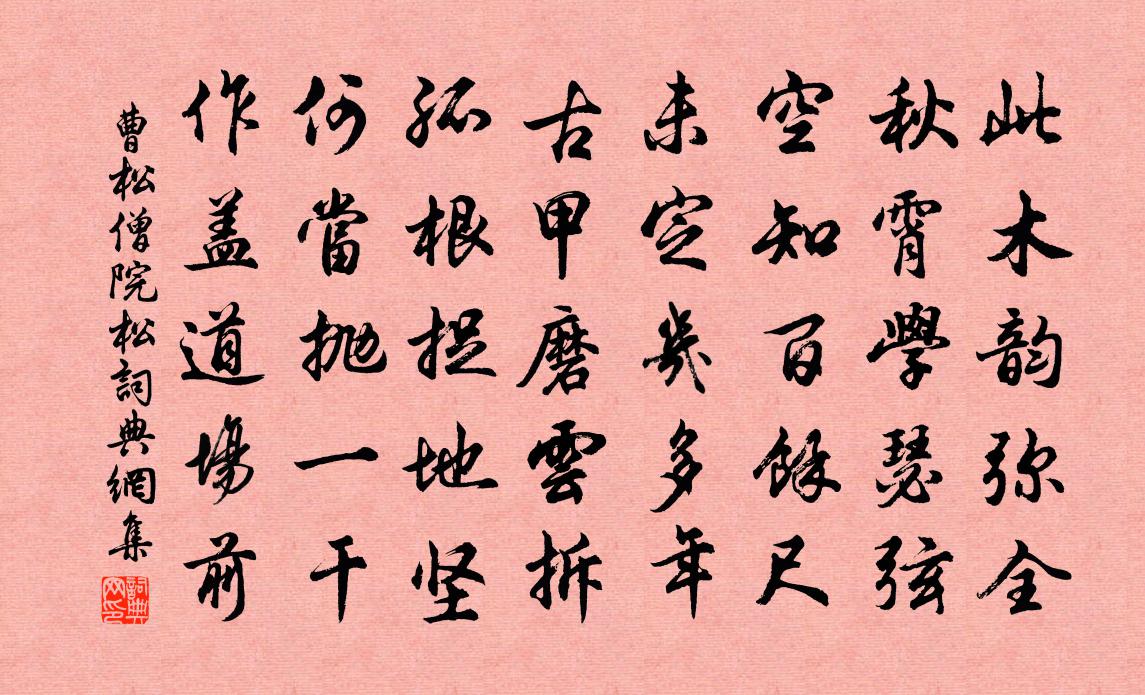 此木韵弥全
秋霄學瑟弦
空知百餘尺
未定幾多年
古甲磨雲拆
孤根捉地坚
何當抛一干
作盖道場前
曹松僧院松詞典網集
詞典网印